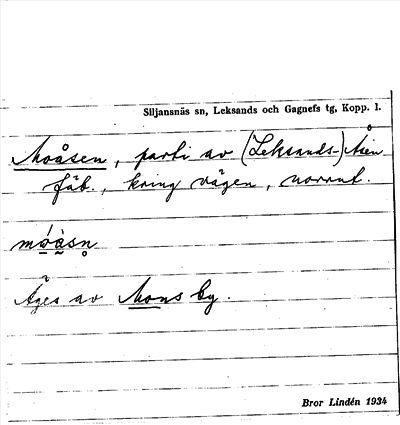 Siljansnäs sn, Leksands och Gagnefs tg, Kopp. l.
Moåsen, parti av (Leksands-) Åsen
fäb., kring vägen, norrut.
Äges av Mons by.
Bror Lindén 1934